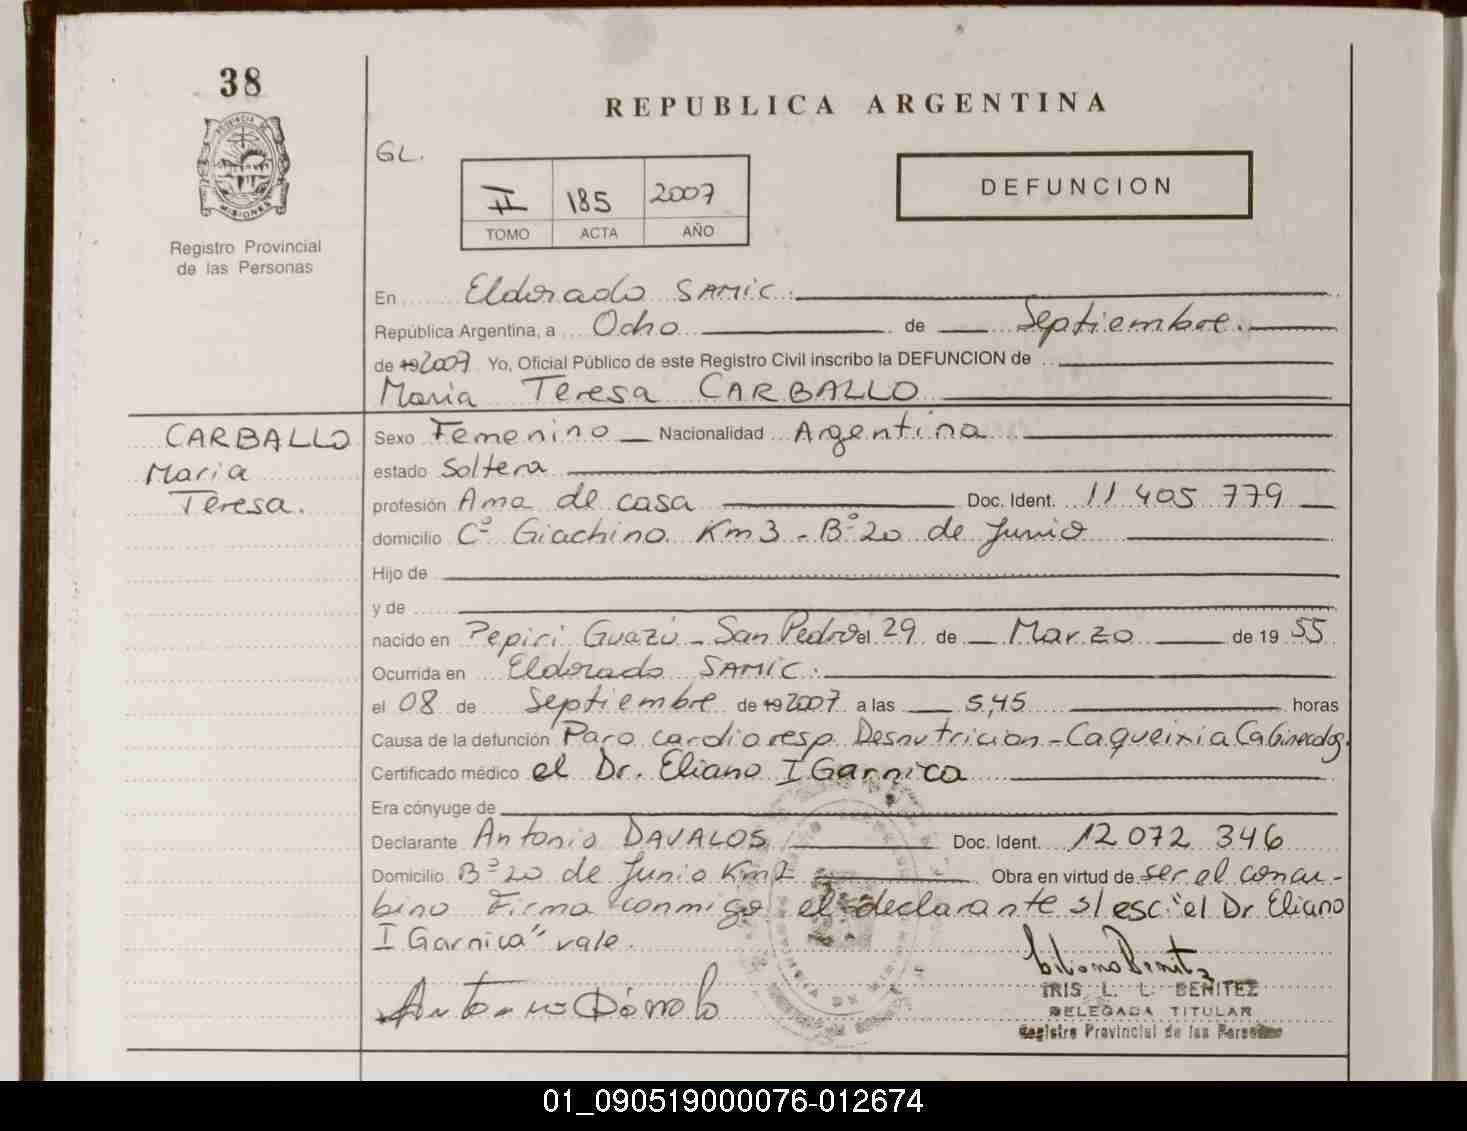 38
REPUBLICA ARGENTINA
PROVINCIA DE
MISIONES
GL.
II 185 2007
TOMO ACTA AÑO
DEFUNCION
Registro Provincial
de las Personas
En Eldorado SAMIC.
República Argentina, a Ocho de Septiembre.
de 19 2007 Yo, Oficial Público de este Registro Civil inscribo la DEFUNCION de
Maria Teresa CARBALLO
CARBALLO
Maria
Teresa.
Sexo Femenino Nacionalidad Argentina
estado Soltera
profesión Ama de casa Doc. Ident. 11 405 779
domicilio Cº Giachino Km 3 - Bº 20 de Junio
Hijo de
y de
nacido en Pepiri Guazú - San Pedro el 29 de Marzo de 19 55
Ocurrida en Eldorado SAMIC.
el 08 de Septiembre de 19 2007 a las 5,45 horas
Causa de la defunción Paro cardioresp. Desnutricion - Caqueixia Ca Ginecolog.
Certificado médico el Dr. Eliano I Garnica
Era cónyuge de
Declarante Antonio DAVALOS Doc. Ident. 12 072 346
Domicilio Bº 20 de Junio Km 2 Obra en virtud de ser el concu-
bino Firma conmigo el declarante s/ esc: "el Dr Eliano
I Garnica" vale.
IRIS L. L. BENITEZ
DELEGADA TITULAR
Registro Provincial de las Personas
01_090519000076-012674